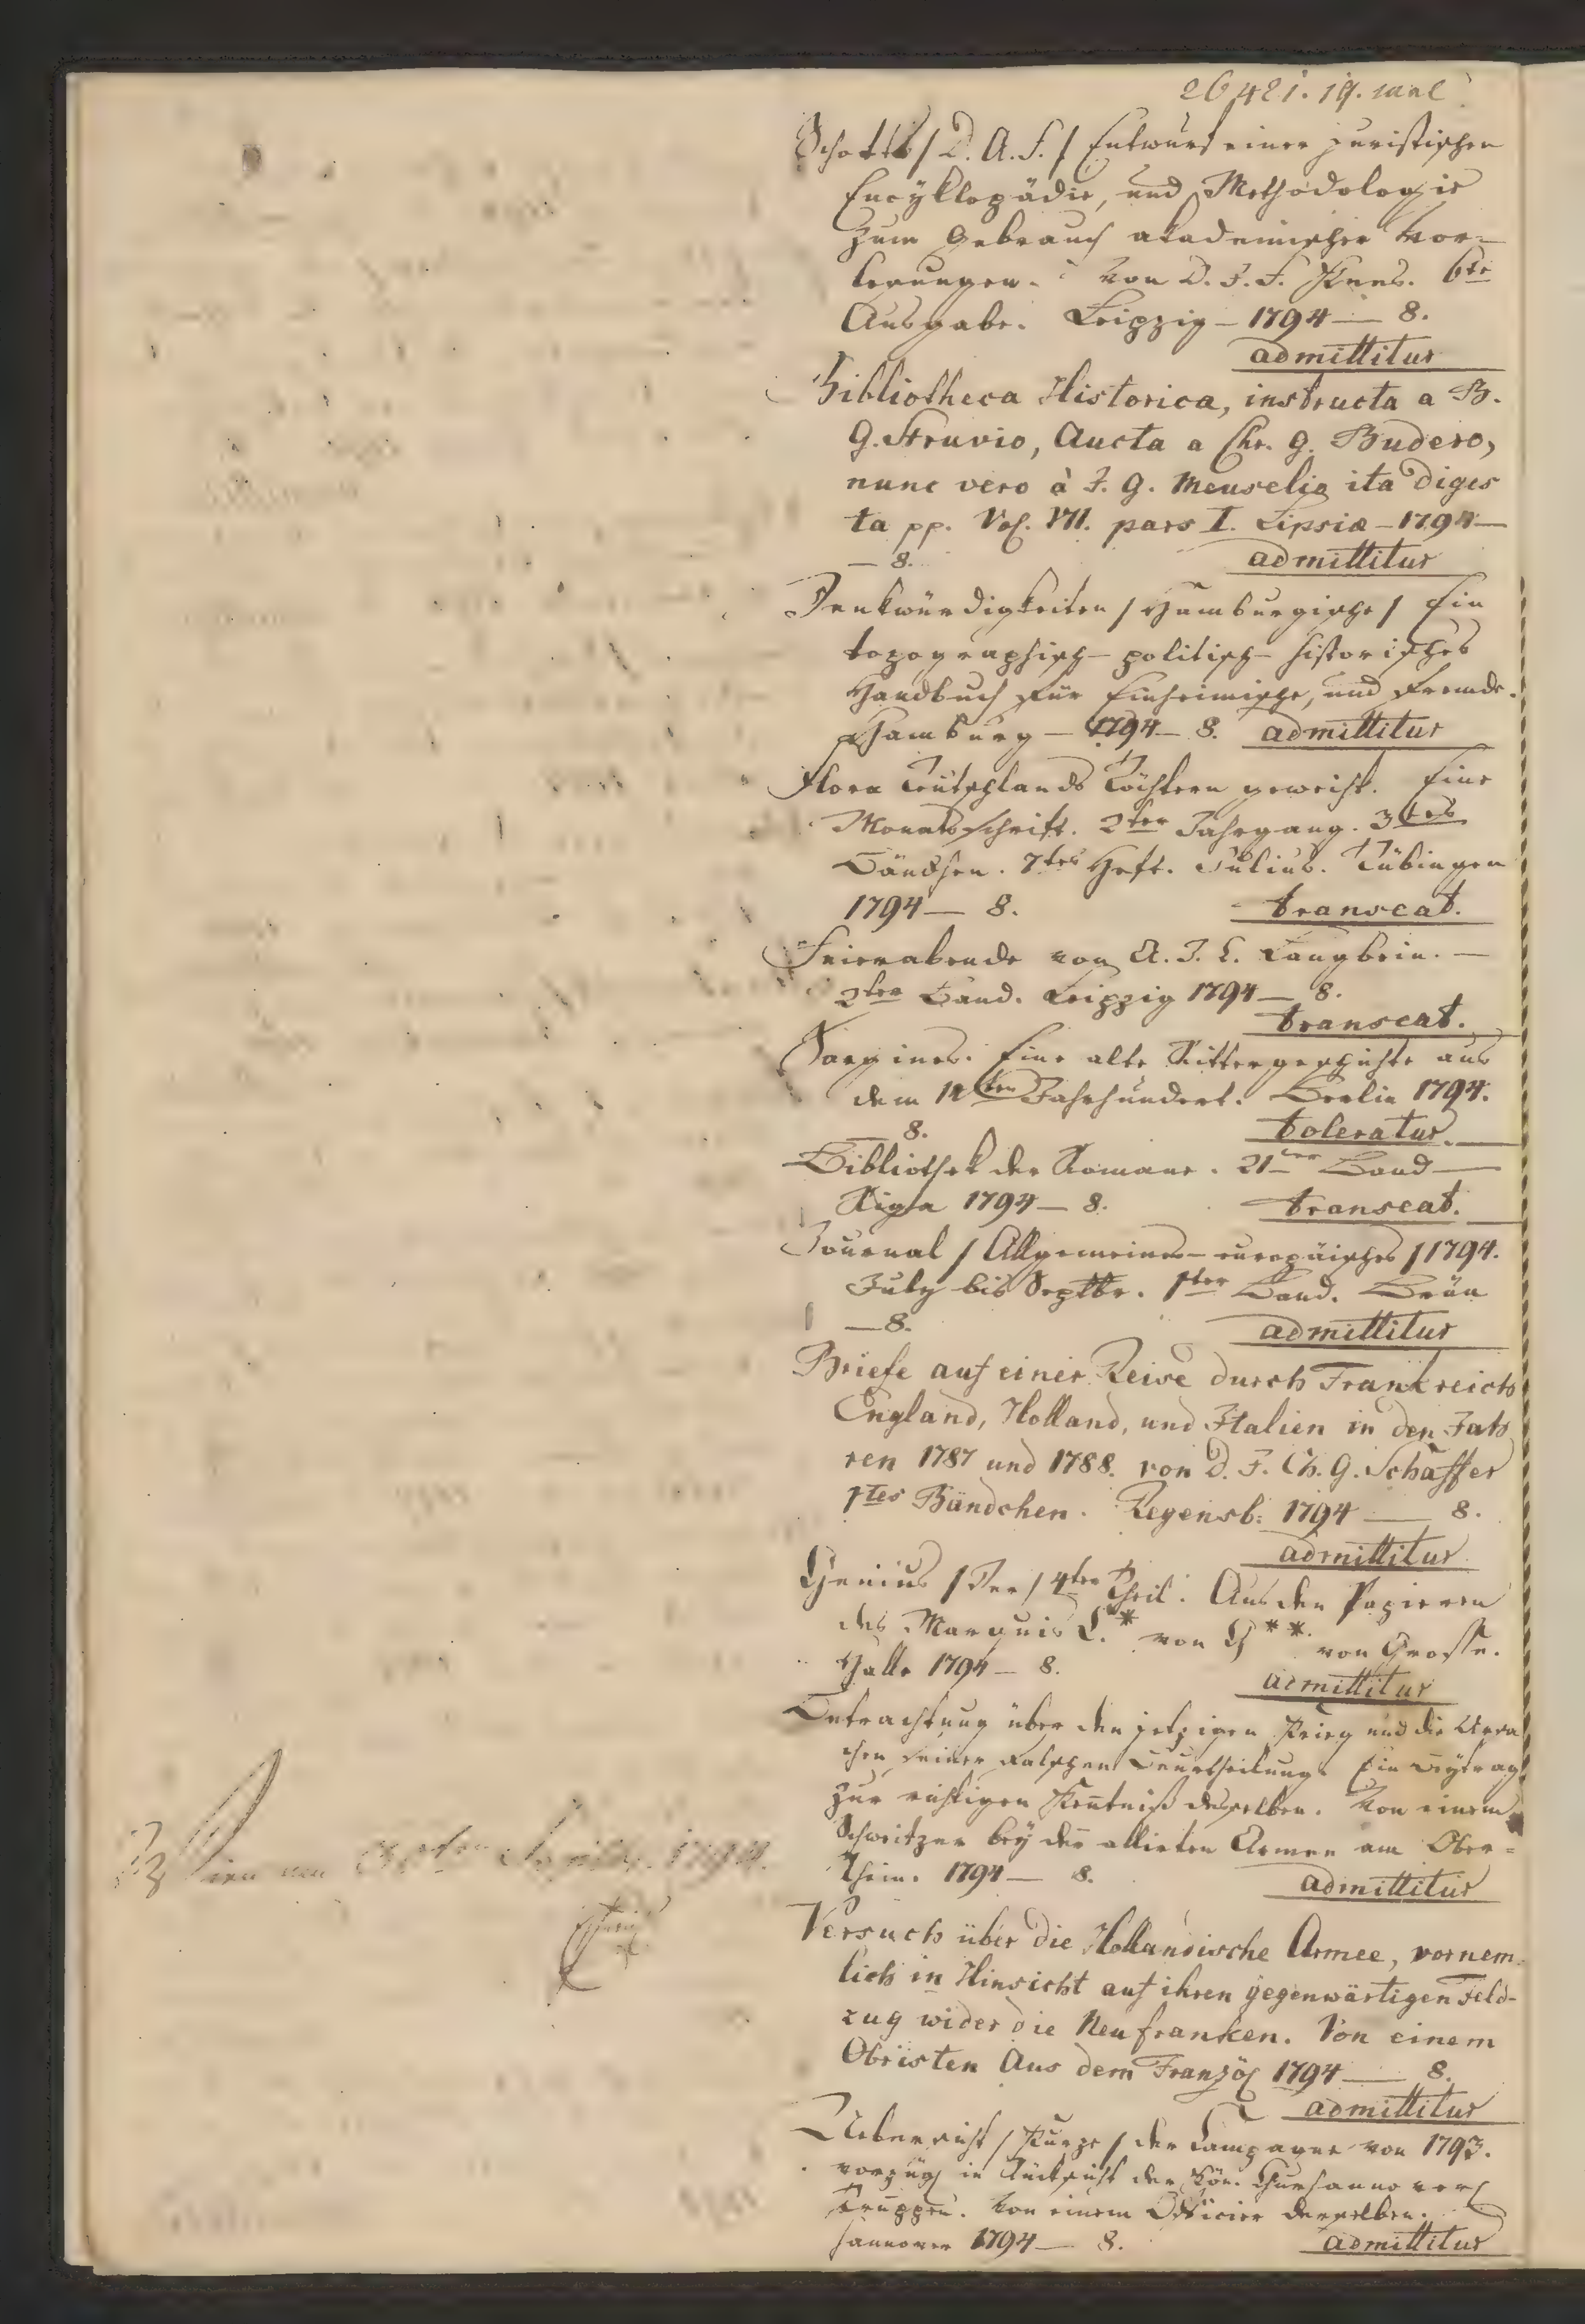 Schotts / D. A. F. / Entwurf einer juristischen
Encÿklopädie, und Methodologie
zum Gebrauch akademischer Vor=
lesungen. von D. J. F. Kees. 6te
Ausgabe. Leipzig – 1794 — 8.
admittitur
Bibliotheca Historica, instructa a B.
G. Struvio, Aucta a Chr. G. Budero,
nunc vero à J. G. Meuselio ita diges
ta pp. Vol. VII. pars I. Lipsiæ – 1794 —
— 8. admittitur
Denkwürdigkeiten / Hamburgische / Ein
topographisch – politisch – historisches
Handbuch für Einheimische, und Fremde.
Hamburg — 1794 — 8. admittitur
Flora Teutschlands Töchtern geweiht. Eine
Monatsschrift. 2ter Jahrgang. 3tes
Bändchen. 7tes Heft. Julius. Tübingen
1794 — 8. transeat.
Feierabende von A. F. E. Langbein. —
2ter Band. Leipzig 1794 — 8.
transeat.
Sargines. Eine alte Rittergeschichte aus
dem 12ten Jahrhundert. Berlin 1794.
— 8. toleratur.
Bibliothek der Romane. 21ter Band —
Riga 1794 — 8. transeat.
Journal / Allgemeines – europäisches / 1794.
July bis Septbr. 1ter Band. Brün
— 8. admittitur
Briefe auf einer Reise durch Frankreich
England, Holland, und Italien in den Jah
ren 1787 und 1788. von D. J. Ch. G. Schäffer
1tes Bändchen. Regensb: 1794 — 8.
admittitur
Genius / Der / 4ter Theil. Aus den Papieren
des Marquis C.* von G** von Grosse.
Halle 1794 — 8. admittitur
Betrachtung über den jetzigen Krieg und die Ursa
chen seiner falschen Beurtheilung. Ein Beÿtrag
zur richtigen Kentniß desselben. Von einem
Schweitzer beÿ der allirten Armee am Ober=
Rhein. 1794 — 8. admittitur
Wien den 1794.
Versuch über die Holländische Armee, vornem
lich in Hinsicht auf ihren gegenwärtigen Feld-
zug wider die Neufranken. Von einem
Obristen Aus dem Franzöſ 1794 — 8.
admittitur
Uebersicht / Kurze / der Campagne von 1793.
vorzügl in Rücksicht der Kön. Churhannover
Truppen. Von einem Officier derselben.
Hannover 1794 — 8. admittitur